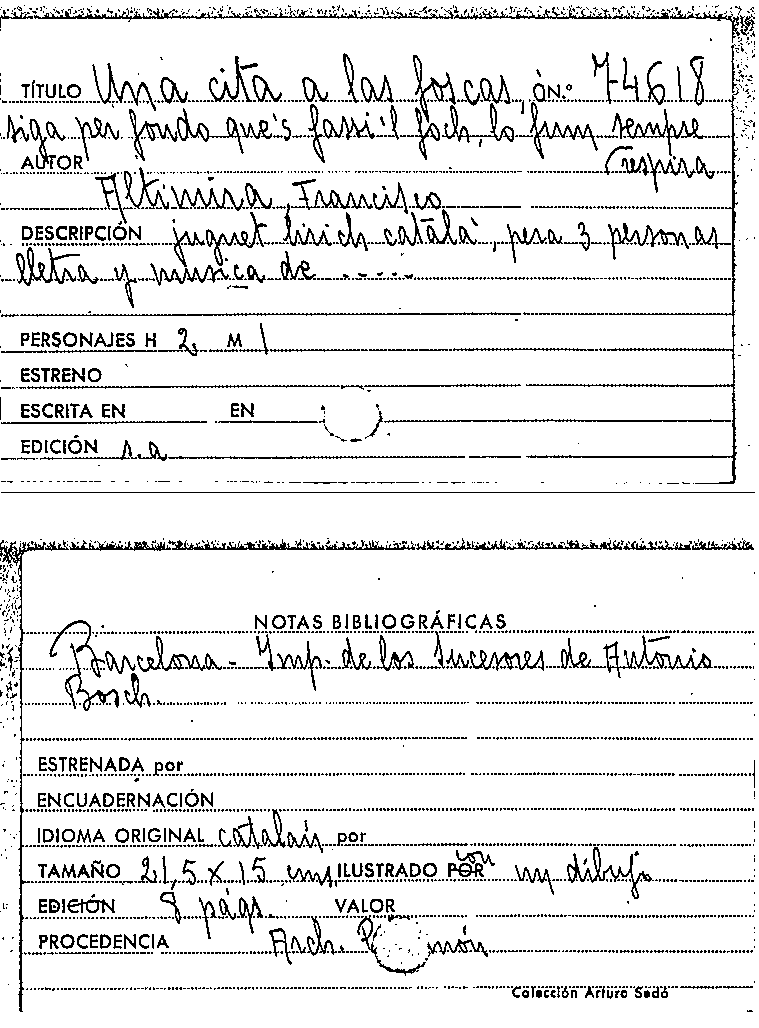 TÍTULO Una cita a las foscas, ó N.º 74618
siga per fondo que's fassi'l foch, lo fum sempre
AUTOR respira
Altimira, Francisco
DESCRIPCIÓN juguet lirich catalá, pera 3 personas
lletra y musica de .....
PERSONAJES H 2, M 1
ESTRENO
ESCRITA EN EN
EDICIÓN s.a
NOTAS BIBLIOGRÁFICAS
Barcelona - Imp. de los Sucesores de Antonio
Bosch.
ESTRENADA por
ENCUADERNACIÓN
IDIOMA ORIGINAL catalán por
TAMAÑO 21,5 x 15 cms, ILUSTRADO POR con un dibujo
EDICIÓN 8 págs. VALOR
PROCEDENCIA Arch.
Colección Arturo Sedó